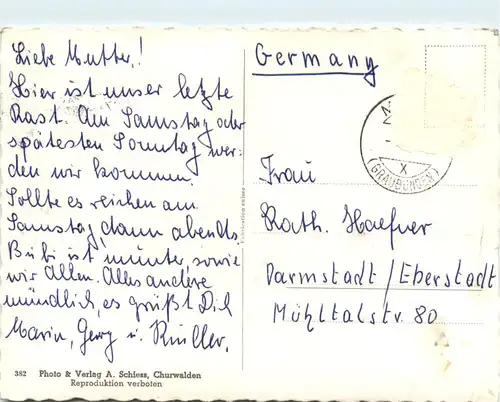 Liebe Mutter!
Hier ist unser letzte
Rast. Am Samstag oder
spätesten Sonntag wer-
den wir kommen.
Sollte es reichen am
Samstag dann abends.
Bubi ist munter, sowie
wir Allen. Alles andere
mündlich, es grüßt Dich
Maria, Georg u.
382 Photo & Verlag A. Schless, Churwalden
Reproduktion verboten
Fabrication suisse
Germany
X
(GRAUBÜNDEN)
Frau
Kath. Haefner
Darmstadt/Eberstadt
Mühltalstr. 80